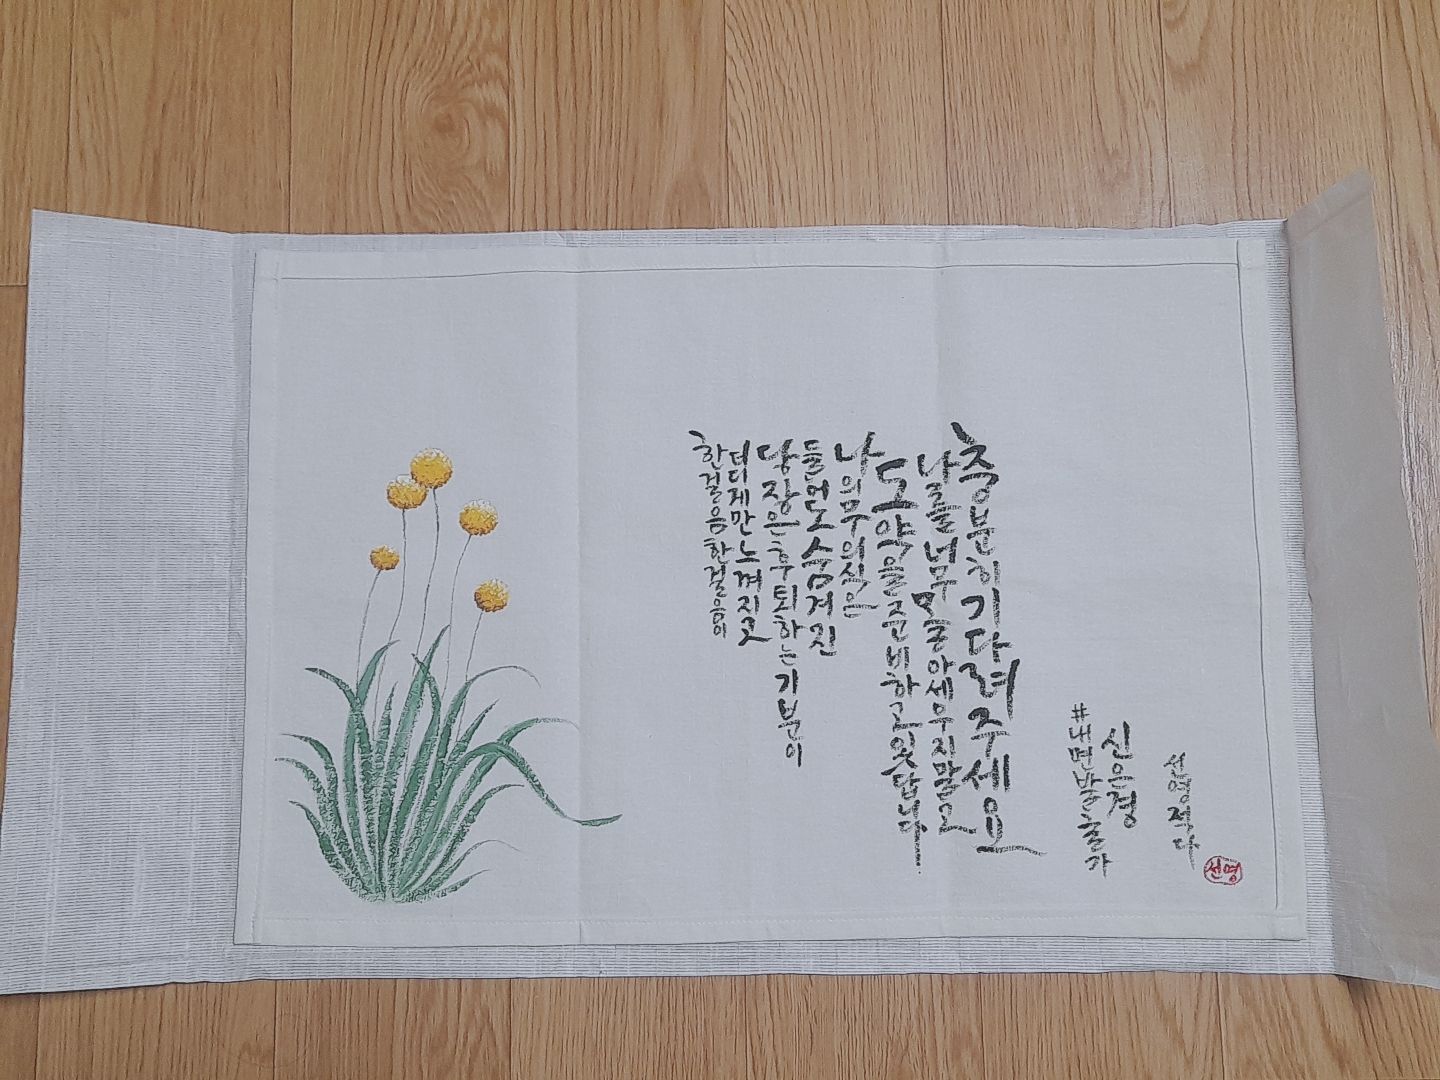 한걸음 한걸음이
더디게만 느껴지고
당장은 후퇴하는 기분이
들어도 숨겨진
나의 무의식은
도약을 준비하고 있답니다
나를 너무 몰아세우지 말고
충분히 기다려주세요
#내면발굴가
신은경
선영적다
선영